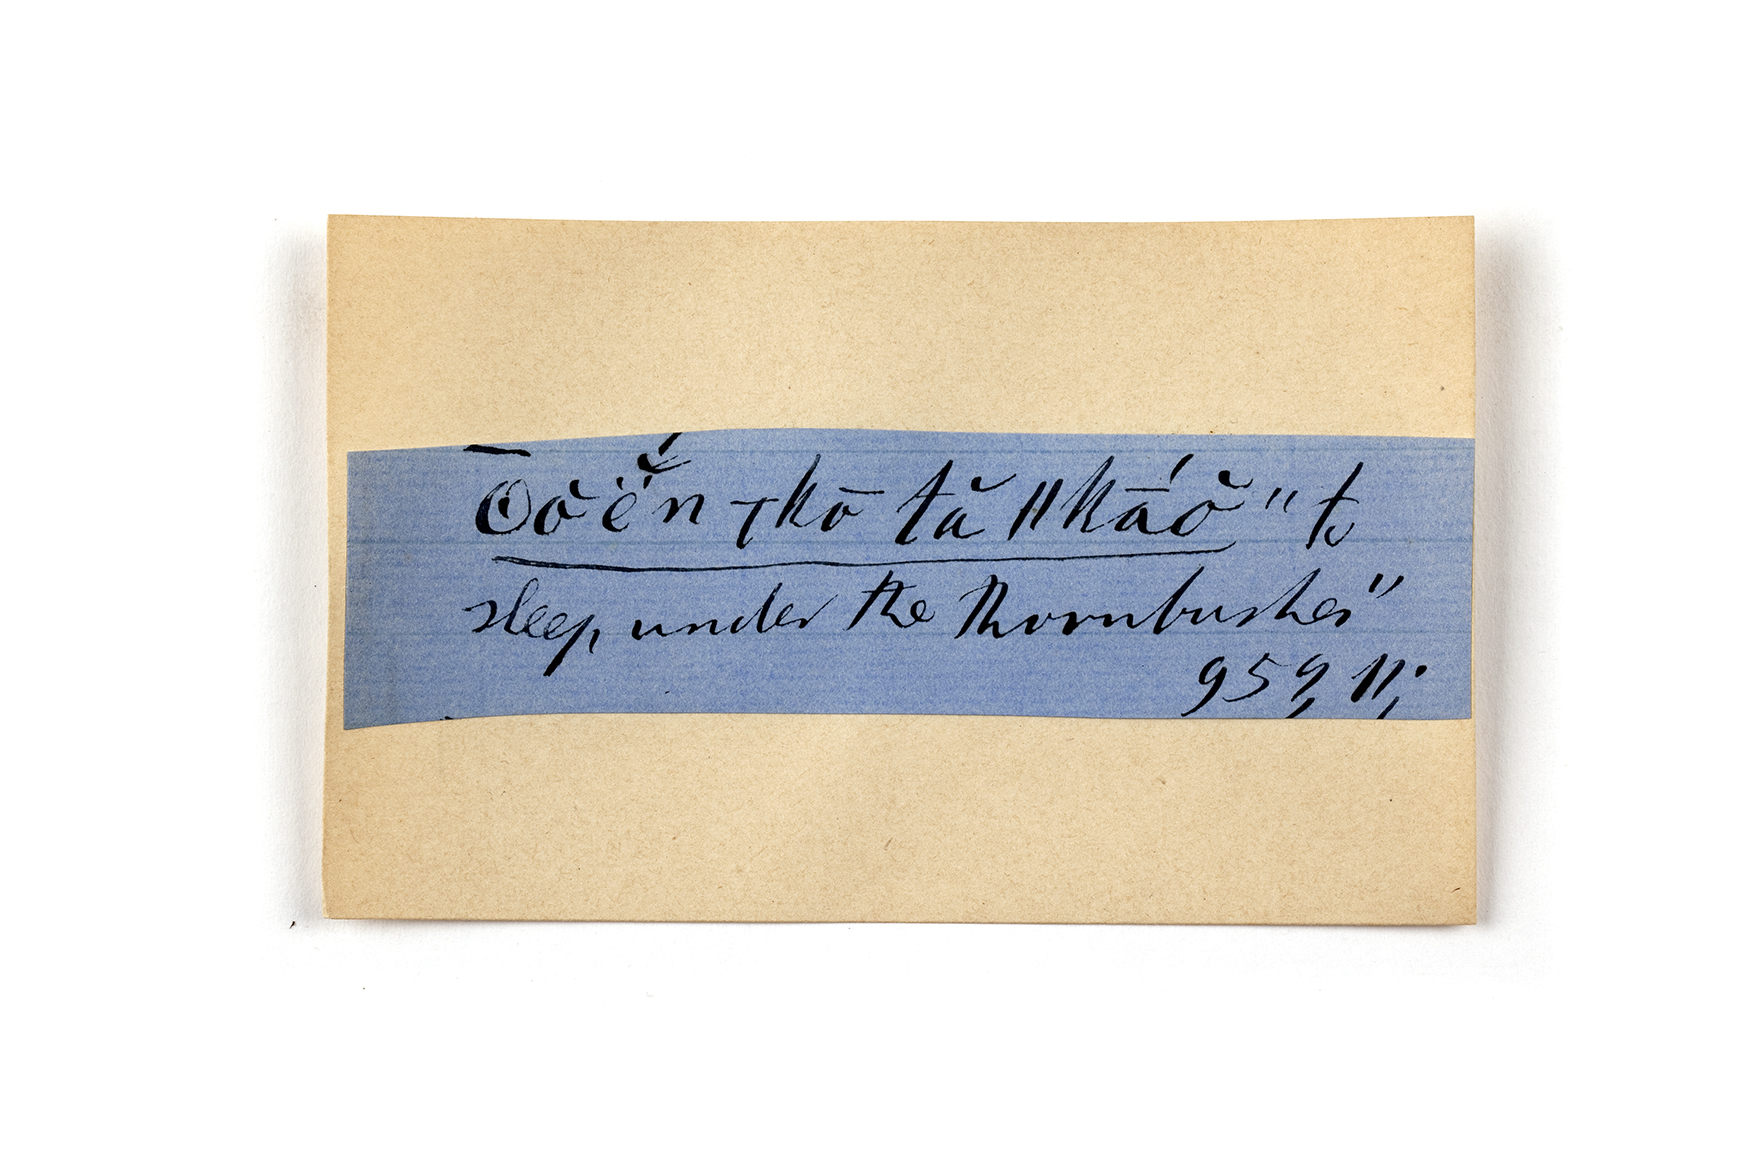 ʘòë̆́n -ꞇkō tă ǁkā́ŏ "to
sleep, under the thornbushes"
959, 11;